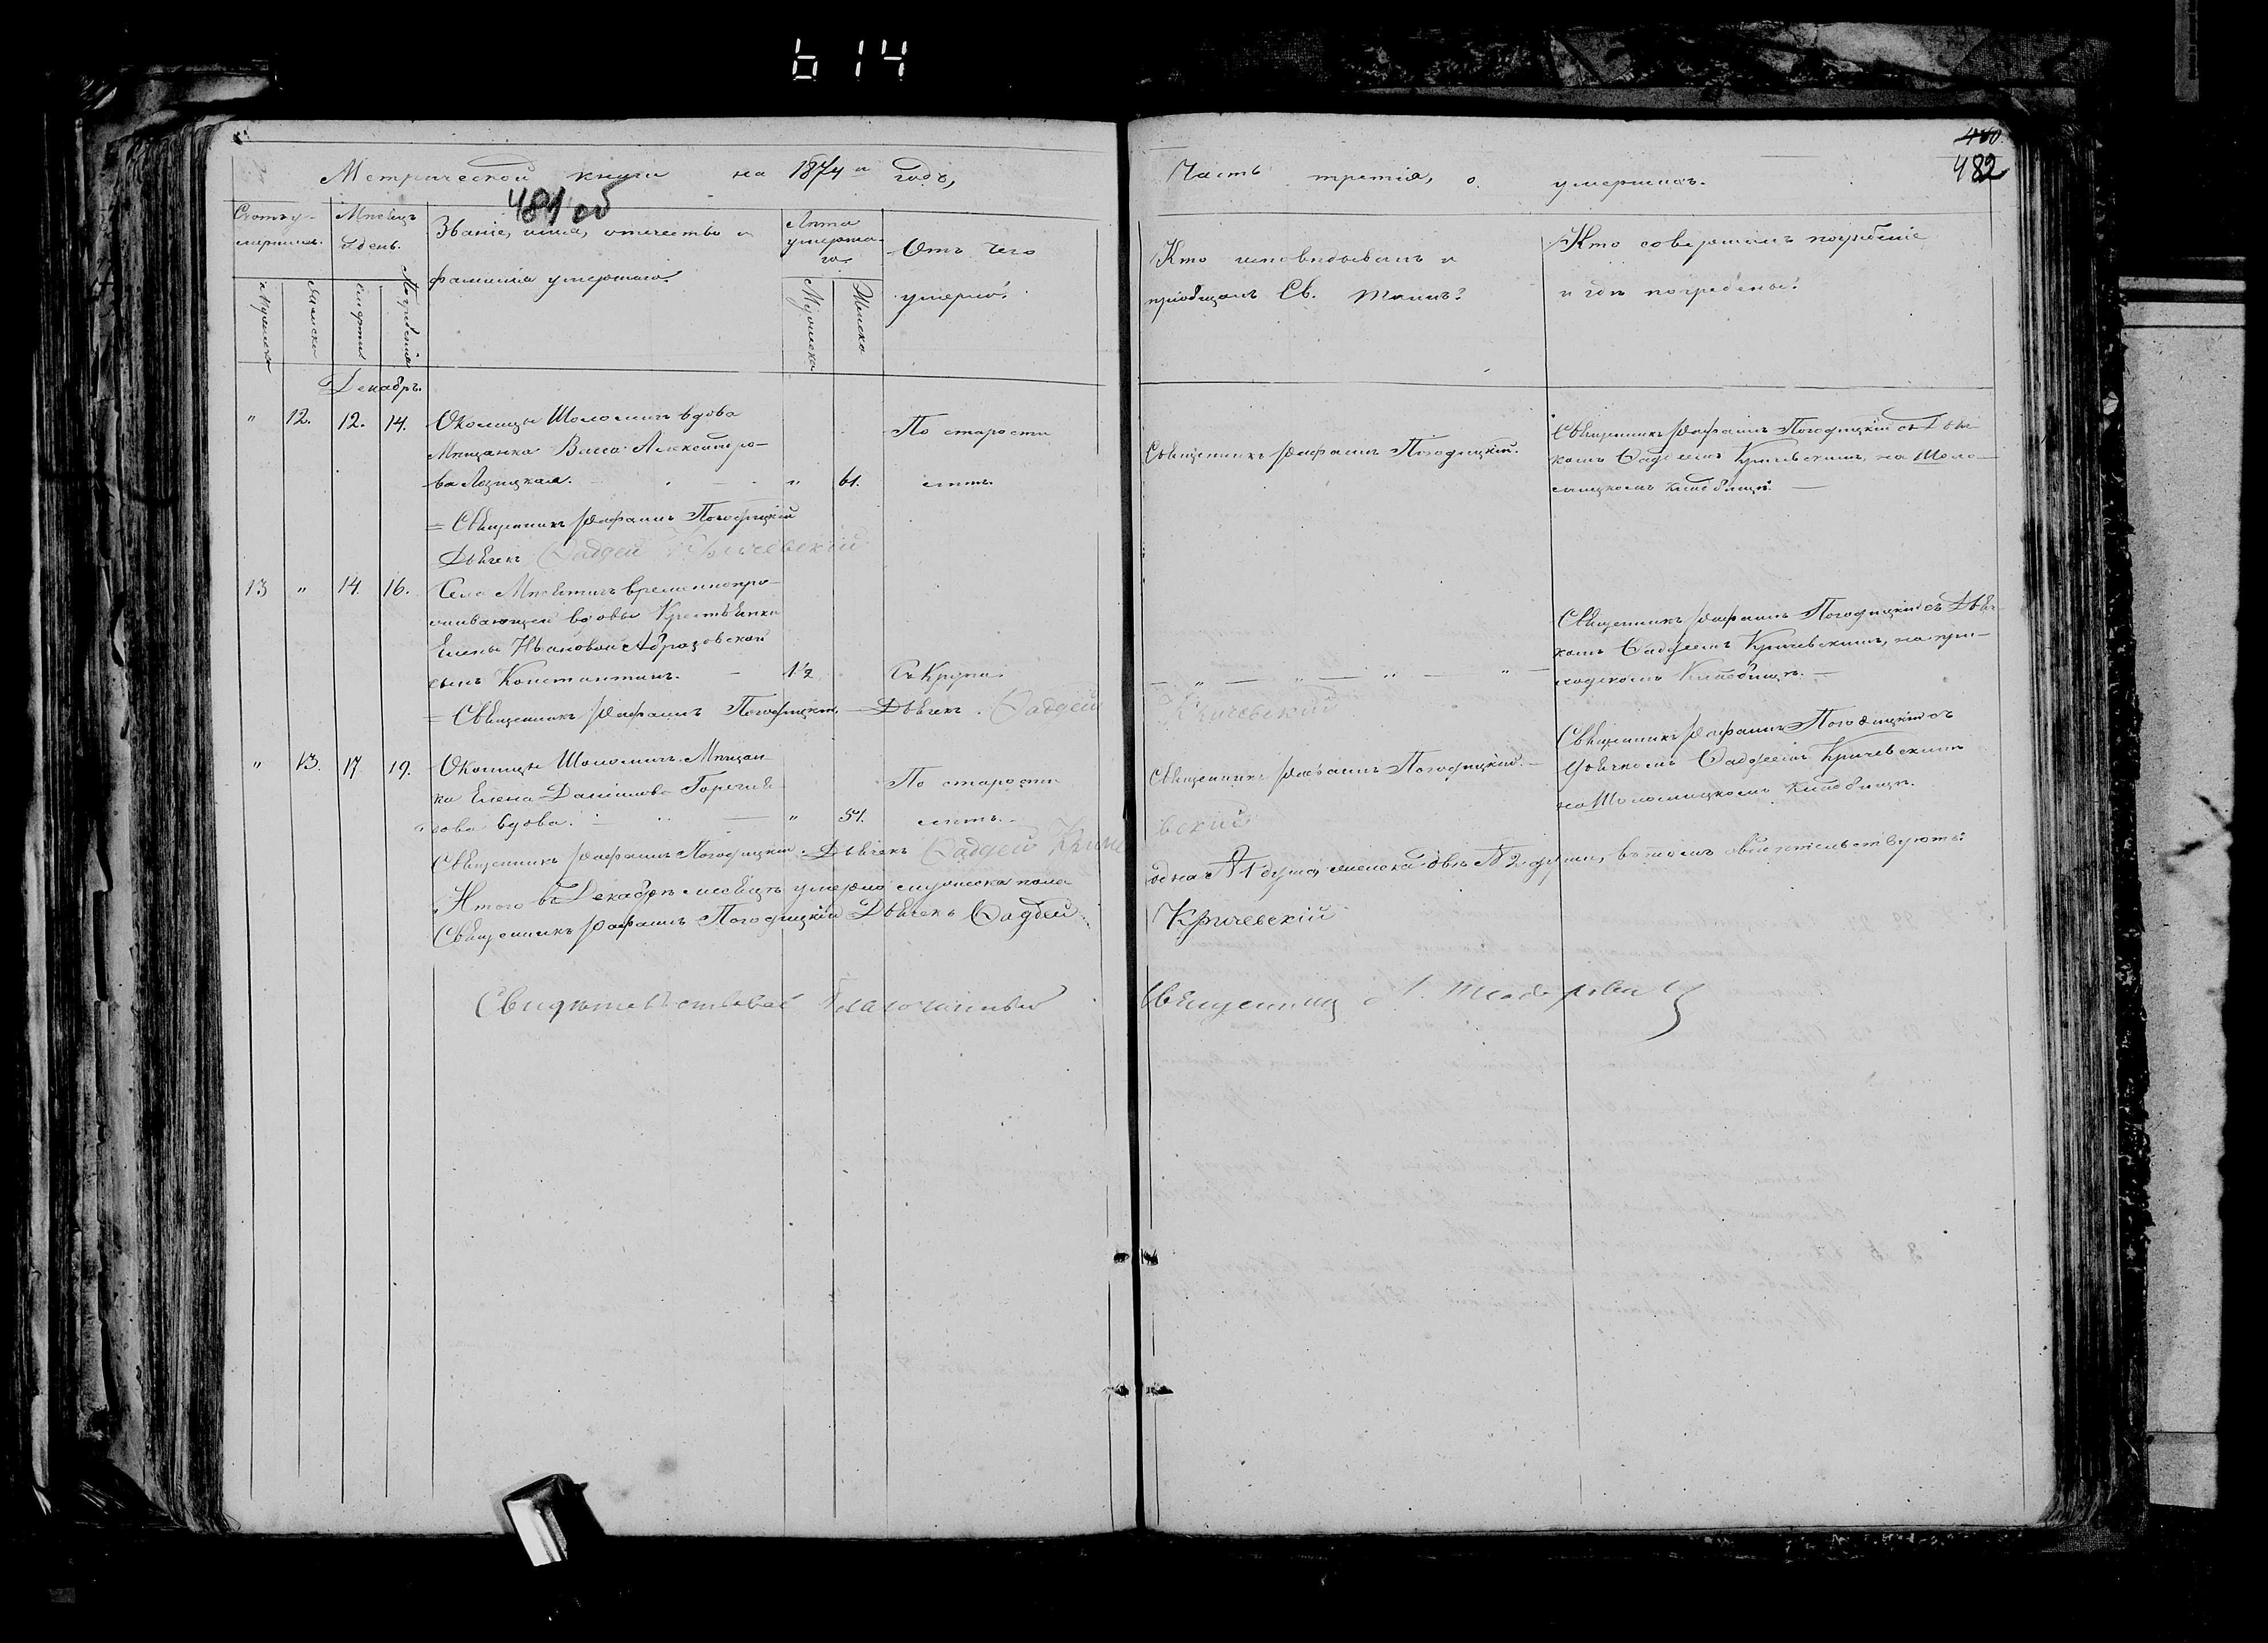 614
480.
482
Метрической книги на 1874 й годъ,
481 об
Часть третія, о умершихъ.
Счетъ у-
мершихъ.
Мѣсяцъ
и день.
Званіе, имя, отчество и
фамилія умершаго.
Лѣта
умерша-
го.
Отъ чего
умеръ?
Мужеска
Женска
смерти
Погребенія
Мужеска
Женска
Кто исповѣдывалъ и
пріобщалъ Св. Таинъ?
Кто совершалъ погребеніе
и гдѣ погребены?
Декабрь.
" 12. 12. 14.
Околицы Шоломичъ вдова
Мѣщанка Васса Александро-
ва Лозицкая. " 61.
По старости
лѣтъ.
Священникъ Рафаилъ Погодицкій.
Священникъ Рафаилъ Погодицкій съ Дьяч-
комъ Фаддеемъ Кричевскимъ, на Шоло-
мицкомъ кладбищѣ.
= Священникъ Рафаилъ Погодицкій
Дьячекъ Фаддей Кричевскій
13 " 14. 16.
Села временнопро-
живающей вдовы Крестьянки
Елены Ивановой
сынъ Константинъ. 1½
Съ Крупа.
— " — " — " — " —
Священникъ Рафаилъ Погодицкій съ Дьяч-
комъ Фаддеемъ Кричевскимъ, на при-
ходскомъ Кладбищѣ.
= Священникъ Рафаилъ Погодицкій. Дьячекъ Фаддей Кричевскій
" 13. 17 19.
Околицы Шоломичъ Мѣщан-
ка Елена Даніилова
вдова. " 57.
По старости
лѣтъ.
Священникъ Рафаилъ Погодицкій.
Священникъ Рафаилъ Погодицкій съ
Дьячкомъ Фаддеемъ Кричевскимъ
на Шоломицкомъ Кладбищѣ.
Священникъ Рафаилъ Погодицкій. Дьячекъ Фаддей Криче вскій
Итого въ Декабрѣ мѣсяцѣ умерло мужеска пола одна № 1 душа, женска двѣ № 2 души, въ томъ свидѣтельствуютъ:
Священникъ Рафаилъ Погодицкій Дьячекъ Фаддей Кричевскій
Свидѣтельствовалъ Благочинный Священникъ